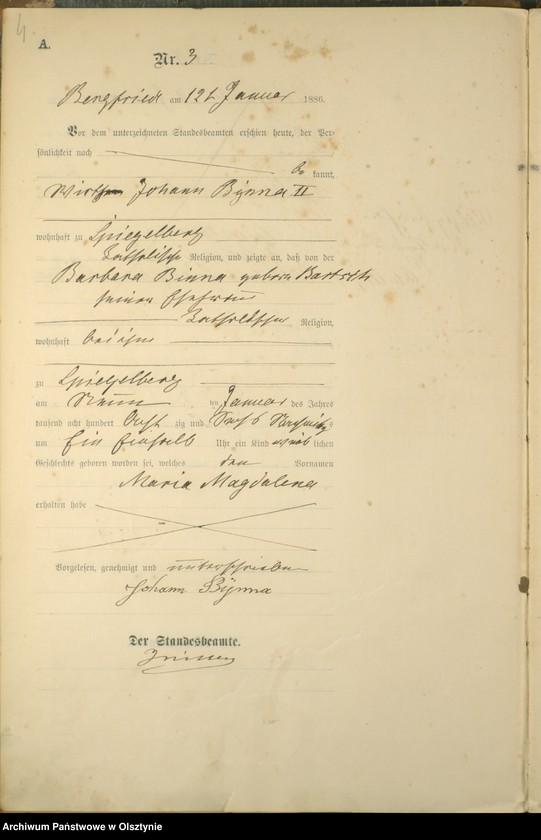 4
A.
Nr. 3
Bergfriede am 12t Januar 1886.
Vor dem unterzeichneten Standesbeamten erschien heute, der Per-
sönlichkeit nach
be kannt,
Johann Bÿnna II
wohnhaft zu Spiegelberg
katholischer Religion, und zeigte an, daß von der
Barbara Binna geborn Bartsch
seiner Ehefrau
katholischer Religion,
wohnhaft bei ihm
zu Spiegelberg
am Neun ten Januar des Jahres
tausend acht hundert Acht zig und Sechs Nachmittag
um Ein einhalb Uhr ein Kind weib lichen
Geschlechts geboren worden sei, welches den Vornamen
Maria Magdalena
erhalten habe
Vorgelesen, genehmigt und unterschrieben
Johann Bÿnna
Der Standesbeamte.
Archiwum Państwowe w Olsztynie